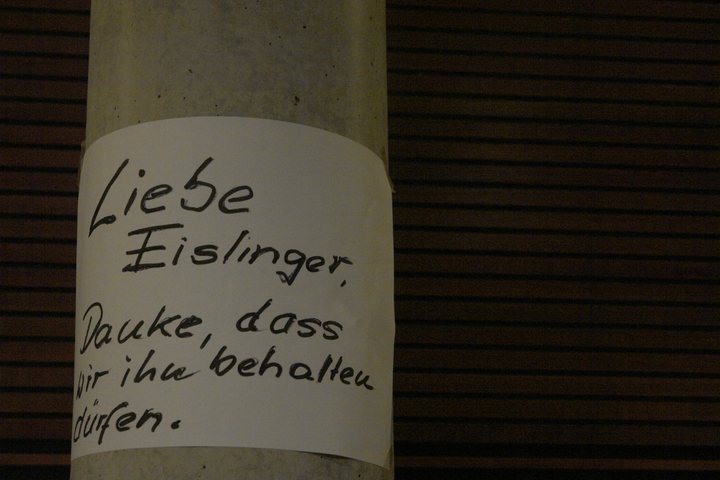 Liebe
Eislinger,
Danke, dass
wir ihn behalten
dürfen.